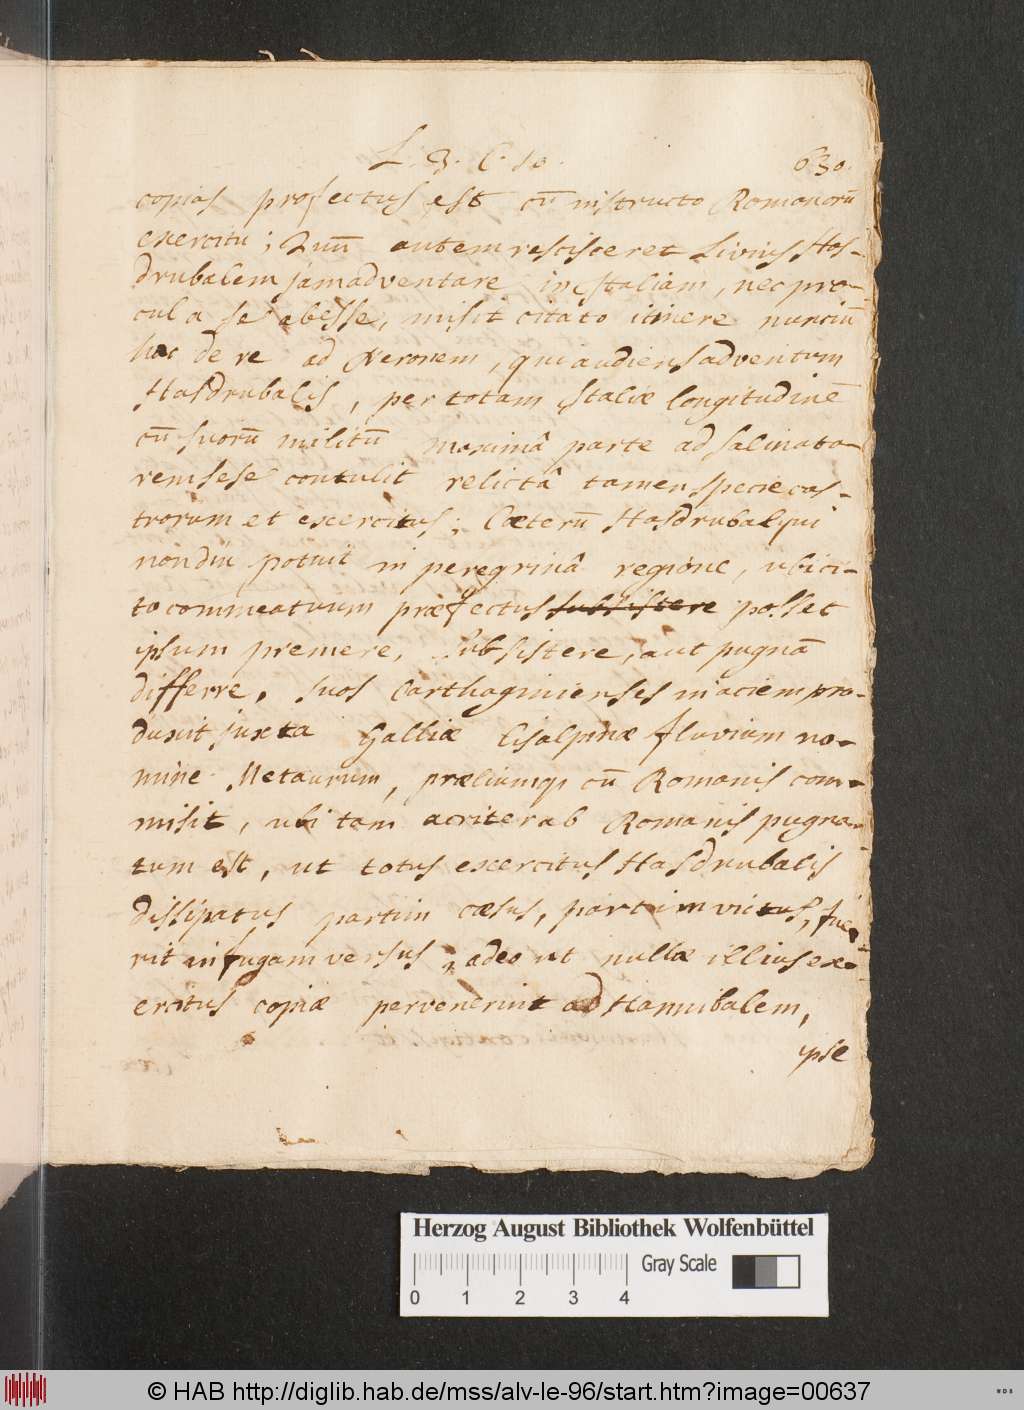 L. 3. C. 10. 630.
copias profectus est cū instructo Romanorū
exercitu; Quū autem rescisceret Livius Has-
drubalem jam adventare in Italiam, nec pro-
cul a se abesse, misit citato itinere nunciū
hac de re ad Neronem, qui audiens adventum
Hasdrubalis, per totam Italiæ longitudinē
cū suorū militū maximâ parte ad Salinato-
rem sese contulit relictâ tamen specie cas-
trorum et exercitus; Cæterū Hasdrubal qui
non diu potuit in peregrinâ regione, ubi ci-
to commeatuum præfectus subsistere posset
ipsum premere, subsistere, aut pugnā
differre, suos Carthaginienses in aciem pro-
duxit juxta Galliæ Cisalpinæ fluvium no-
mine Metaurum, præliumq; cū Romanis com-
misit, ubi tam acriter ab Romanis pugna-
tum est, ut totus exercitus Hasdrubalis
dissipatus partim cæsus, partim victus, fue-
rit in fugam versus, adeo ut nullæ illius ex-
ercitus copiæ pervenerint ad Hannibalem,
ipse
Herzog August Bibliothek Wolfenbüttel
Gray Scale
0 1 2 3 4
© HAB http://diglib.hab.de/mss/alv-le-96/start.htm?image=00637